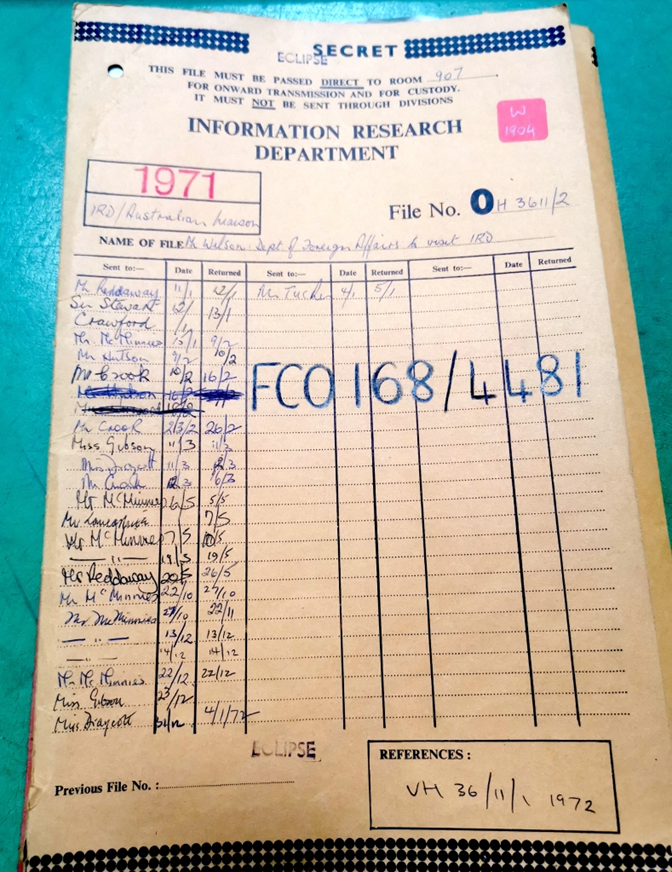 SECRET
ECLIPSE
THIS FILE MUST BE PASSED DIRECT TO ROOM 907
FOR ONWARD TRANSMISSION AND FOR CUSTODY.
IT MUST NOT BE SENT THROUGH DIVISIONS
W
1904
INFORMATION RESEARCH
DEPARTMENT
1971
IRD/Australian liaison
File No. OH 3611/2
NAME OF FILE Mr Watson: Dept of Foreign Affairs to visit IRD
Sent to:— Date Returned Sent to:— Date Returned Sent to:— Date Returned
Mr Reddaway 11/1 12/1 Mr Tucker 4/1 5/1
Sir Stewart 12/ 13/1
Crawford /1
Mr McMinnies 13/1 9/2
Mr Hutson 9/2 10/2
Mr Crook 10/2 16/2
FCO 168/4481
Mr Crook 23/2 26/2
Miss Gibson 11/3 11/3
11/3 12/3
12/3 16/3
Mr McMinnies 6/5 5/5
Mr 7/5
Mr McMinnies 7/5 10/5
— " — 19/5 19/5
Mr Reddaway 20/5 26/5
Mr McMinnies 22/10 27/10
Mr McMinnies 27/10 22/11
— " — 13/12 13/12
— " — 14/12 14/12
Mr McMinnies 22/12 22/12
Miss Gibson 23/12
Miss Draycott 31/12 4/1/72
ECLIPSE
Previous File No. :
REFERENCES :
VH 36/11/1 1972